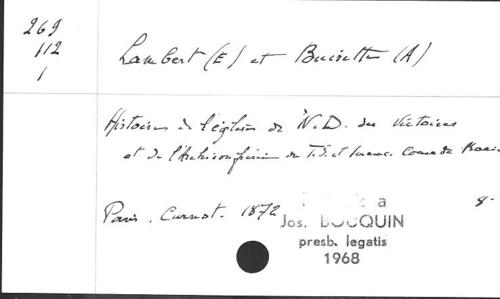 269
112
1
Lambert (E) et Buirette (A)
Histoire de l'église de N.D. des Victoires
et de l'Archiconfrérie du T.S. et Immac. Coeur de
Paris, Curnot. 1872
8-
a
Jos. BOUCQUIN
presb. legatis
1968